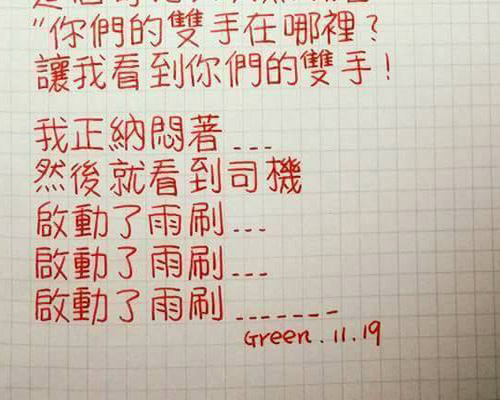 "你們的雙手在哪裡?
讓我看到你們的雙手!
我正納悶著---
然後就看到司機
啟動了雨刷---
啟動了雨刷---
啟動了雨刷-------
Green.11.19